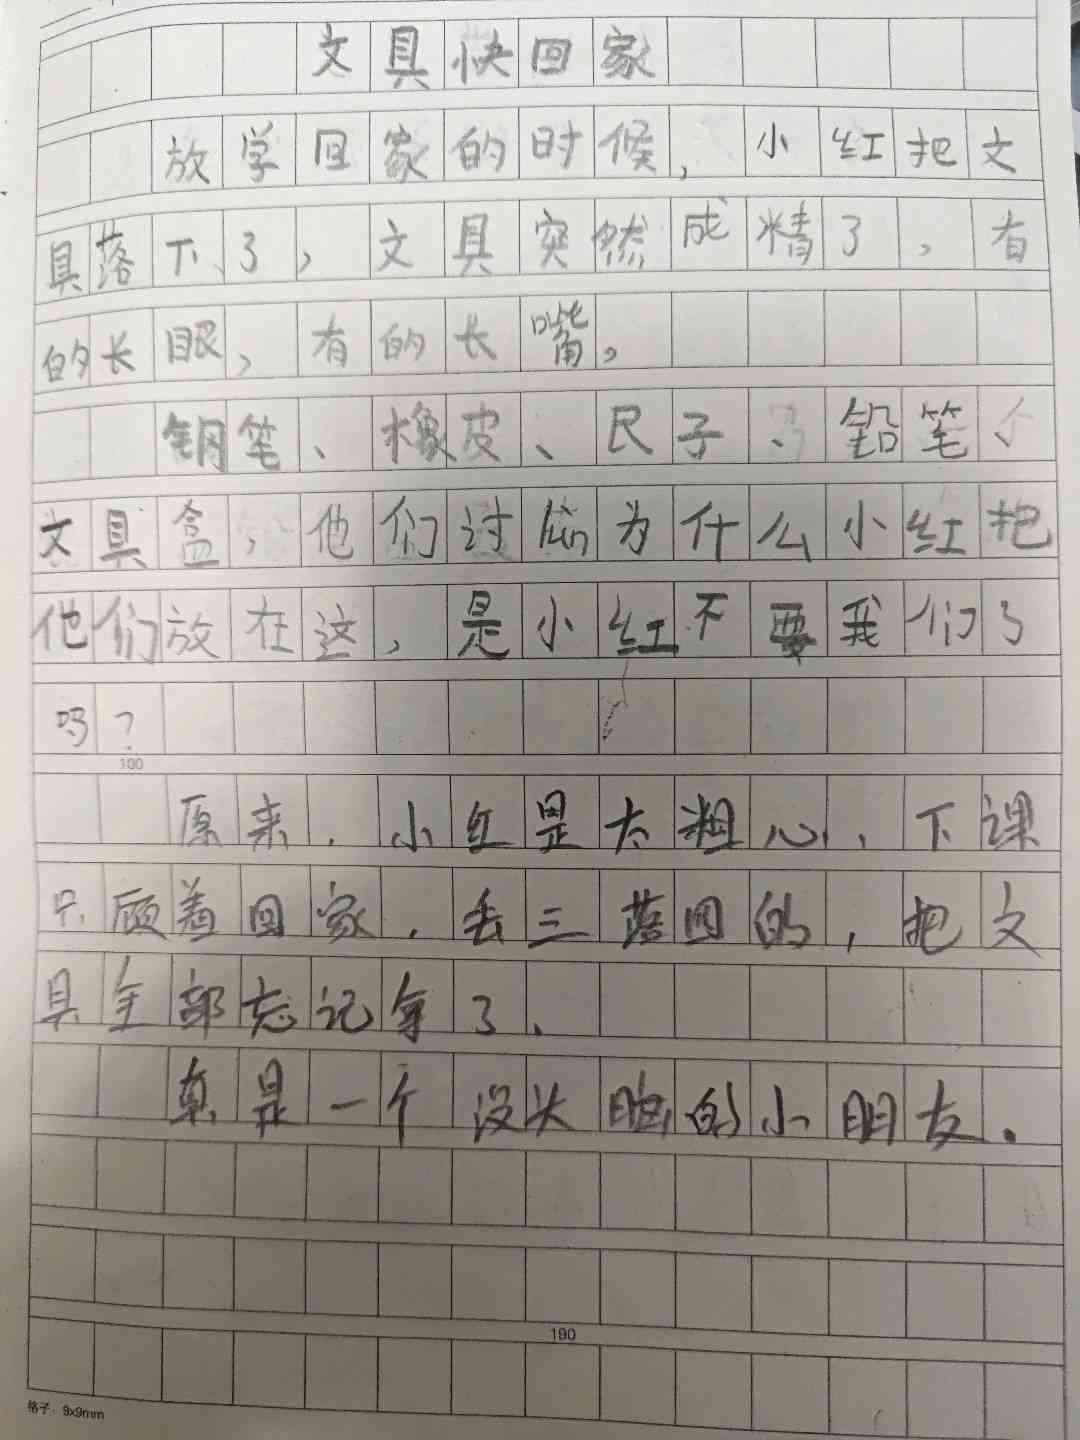 文具快回家
放学回家的时候，小红把文
具落下了，文具突然成精了，有
的长眼，有的长嘴。
钢笔、橡皮、尺子、铅笔个
文具盒，他们讨论为什么小红把
他们放在这，是小红不要我们了
吗？
100
原来，小红是太粗心，下课
只顾着回家，丢三落四的，把文
具全部忘记拿了、
真是一个没头脑的小朋友.
190
格子：9x9mm